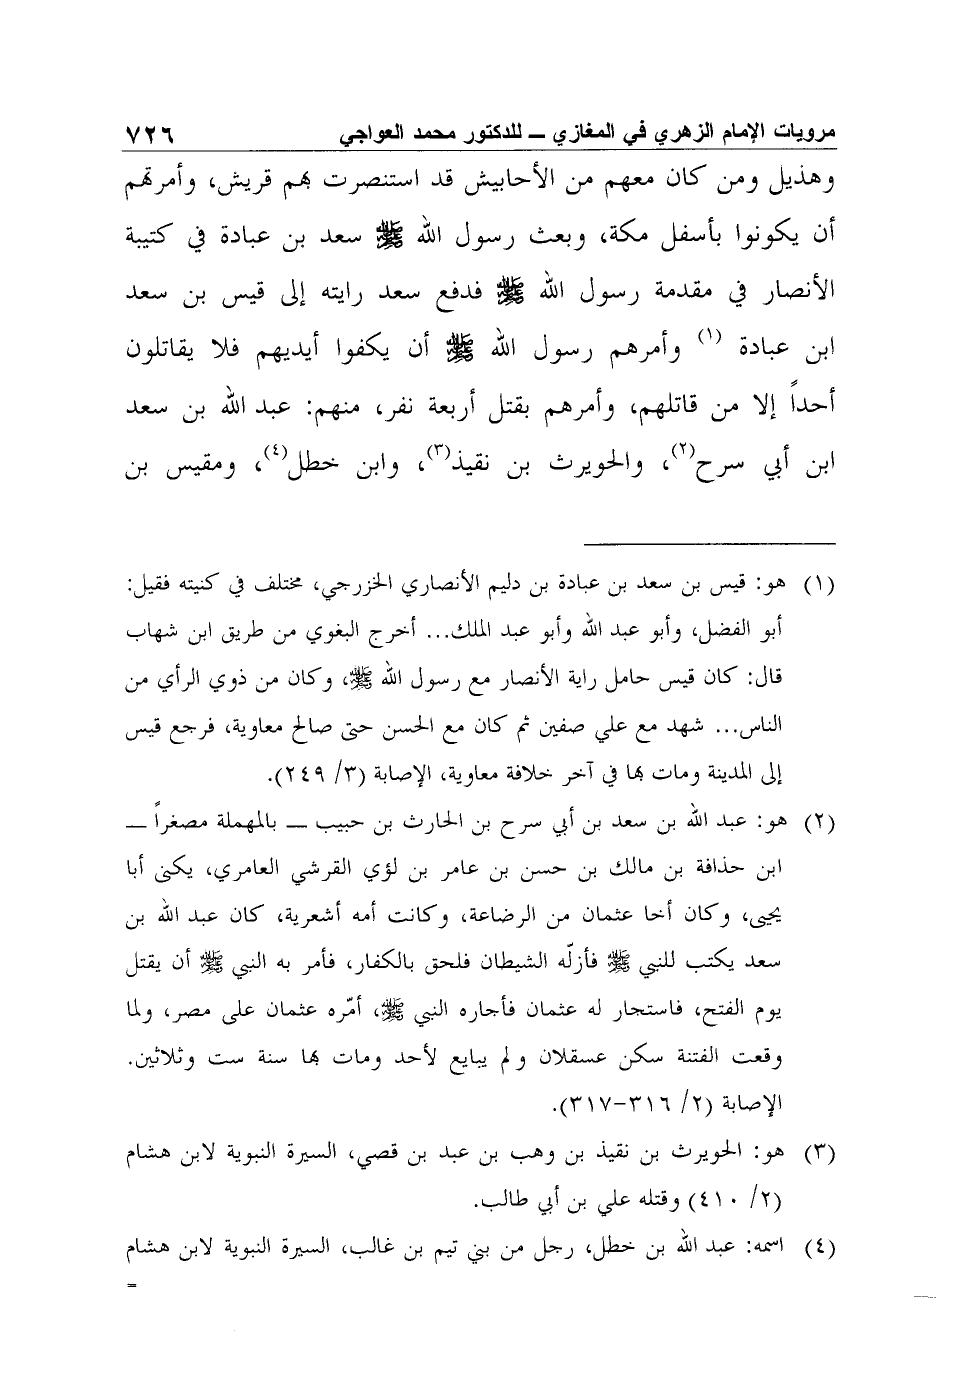 مرويات الإمام الزهري في المغازي ــ للدكتور محمد العواجي ٧٢٦
وهذيل ومن كان معهم من الأحابيش قد استنصرت بهم قريش، وأمرتهم
أن يكونوا بأسفل مكة، وبعث رسول الله ﷺ سعد بن عبادة في كتيبة
الأنصار في مقدمة رسول الله ﷺ فدفع سعد رايته إلى قيس بن سعد
ابن عبادة (١) وأمرهم رسول الله ﷺ أن يكفوا أيديهم فلا يقاتلون
أحداً إلا من قاتلهم، وأمرهم بقتل أربعة نفر، منهم: عبد الله بن سعد
ابن أبي سرح(٢)، والحويرث بن نقيذ(٣)، وابن خطل(٤)، ومقيس بن
(١) هو: قيس بن سعد بن عبادة بن دليم الأنصاري الخزرجي، مختلف في كنيته فقيل:
أبو الفضل، وأبو عبد الله وأبو عبد الملك... أخرج البغوي من طريق ابن شهاب
قال: كان قيس حامل راية الأنصار مع رسول الله ﷺ، وكان من ذوي الرأي من
الناس... شهد مع علي صفين ثم كان مع الحسن حتى صالح معاوية، فرجع قيس
إلى المدينة ومات بها في آخر خلافة معاوية، الإصابة (٣/ ٢٤٩).
(٢) هو: عبد الله بن سعد بن أبي سرح بن الحارث بن حبيب ــ بالمهملة مصغراً ــ
ابن حذافة بن مالك بن حسن بن عامر بن لؤي القرشي العامري، يكنى أبا
يحيى، وكان أخا عثمان من الرضاعة، وكانت أمه أشعرية، كان عبد الله بن
سعد يكتب للنبي ﷺ فأزلّه الشيطان فلحق بالكفار، فأمر به النبي ﷺ أن يقتل
يوم الفتح، فاستجار له عثمان فأجاره النبي ﷺ، أمّره عثمان على مصر، ولما
وقعت الفتنة سكن عسقلان ولم يبايع لأحد ومات بها سنة ست وثلاثين.
الإصابة (٢/ ٣١٦-٣١٧).
(٣) هو: الحويرث بن نقيذ بن وهب بن عبد بن قصي، السيرة النبوية لابن هشام
(٢/ ٤١٠) وقتله علي بن أبي طالب.
(٤) اسمه: عبد الله بن خطل، رجل من بني تيم بن غالب، السيرة النبوية لابن هشام
=